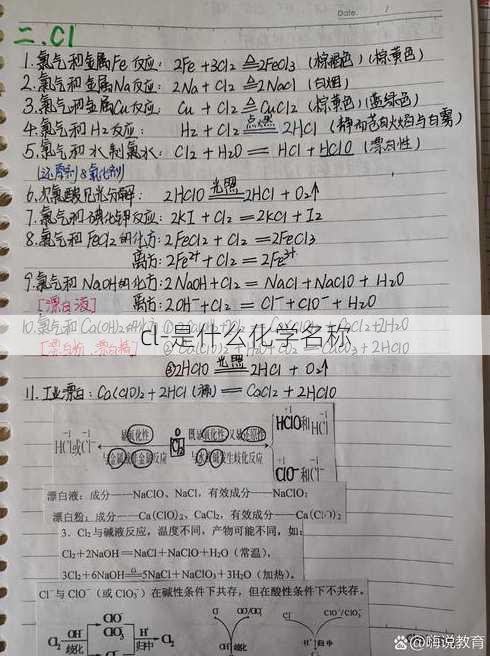 Date. /
二.Cl
1.氯气和金属Fe反应: 2Fe+3Cl2 ≜ 2FeCl3 (棕褐色)(棕黄色)
2.氯气和金属Na反应: 2Na+Cl2 ≜ 2NaCl (白烟)
3.氯气和金属Cu反应: Cu+Cl2 ≜ CuCl2 (棕黄色)(蓝绿色)
4.氯气和H2反应: H2+Cl2 点燃 2HCl (苍白火焰与白雾)
5.氯气和水制氯水: Cl2+H2O = HCl+HClO (漂白性)
(还原剂&氧化剂)
6.次氯酸见光分解: 2HClO 光照 2HCl+O2↑
7.氯气和碘化钾反应: 2KI+Cl2=2KCl+I2
8.氯气和FeCl2的化方: 2FeCl2+Cl2=2FeCl3
离方: 2Fe2++Cl2=2Fe3+
9.氯气和NaOH的化方: 2NaOH+Cl2=NaCl+NaClO+H2O
[漂白液] 离方: 2OH-+Cl2=Cl-+ClO-+H2O
10.氯气和Ca(OH)2的化方
cl-是什么化学名称
[漂白粉、漂白精]
②2HClO 光照 2HCl+O2↑
11.工业漂白: Ca(ClO)2+2HCl(稀)=CaCl2+2HClO
-1 强氧化性 0 既氧化性又还原性 +1 -1
HCl或Cl- Cl2 HClO和HCl
与金属或非金属反应 与水或碱发生歧化反应 +1 -1
ClO-和Cl-
漂白液:成分——NaClO、NaCl,有效成分——NaClO;
漂白粉:成分——Ca(ClO)2、CaCl2,有效成分——Ca(ClO)2
3.Cl2与碱液反应,温度不同,产物可能不同,如:
Cl2+2NaOH=NaCl+NaClO+H2O(常温),
3Cl2+6NaOH≜5NaCl+NaClO3+3H2O(加热)。
Cl-与ClO-(或ClO3-)在碱性条件下共存,但在酸性条件下不共存。
ClO- Cl2 ClO-/ClO3- Cl- ClO-/ClO3-
Cl2 OH- 歧化 ClO3- H+ 归中 Cl2 OH- 歧化 H+ 归中
Cl-
@嗨说教育